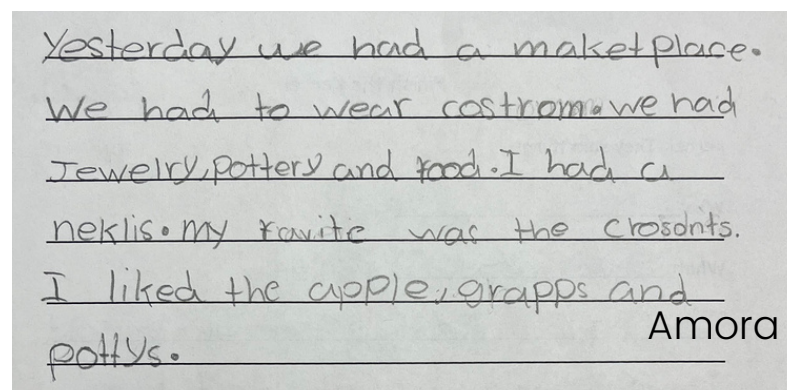 Yesterday we had a maketplace.
We had to wear costrom. we had
Jewelry, pottery and food. I had a
neklis. my favite was the crosdnts.
I liked the apple, grapps and
Amora
pottys.